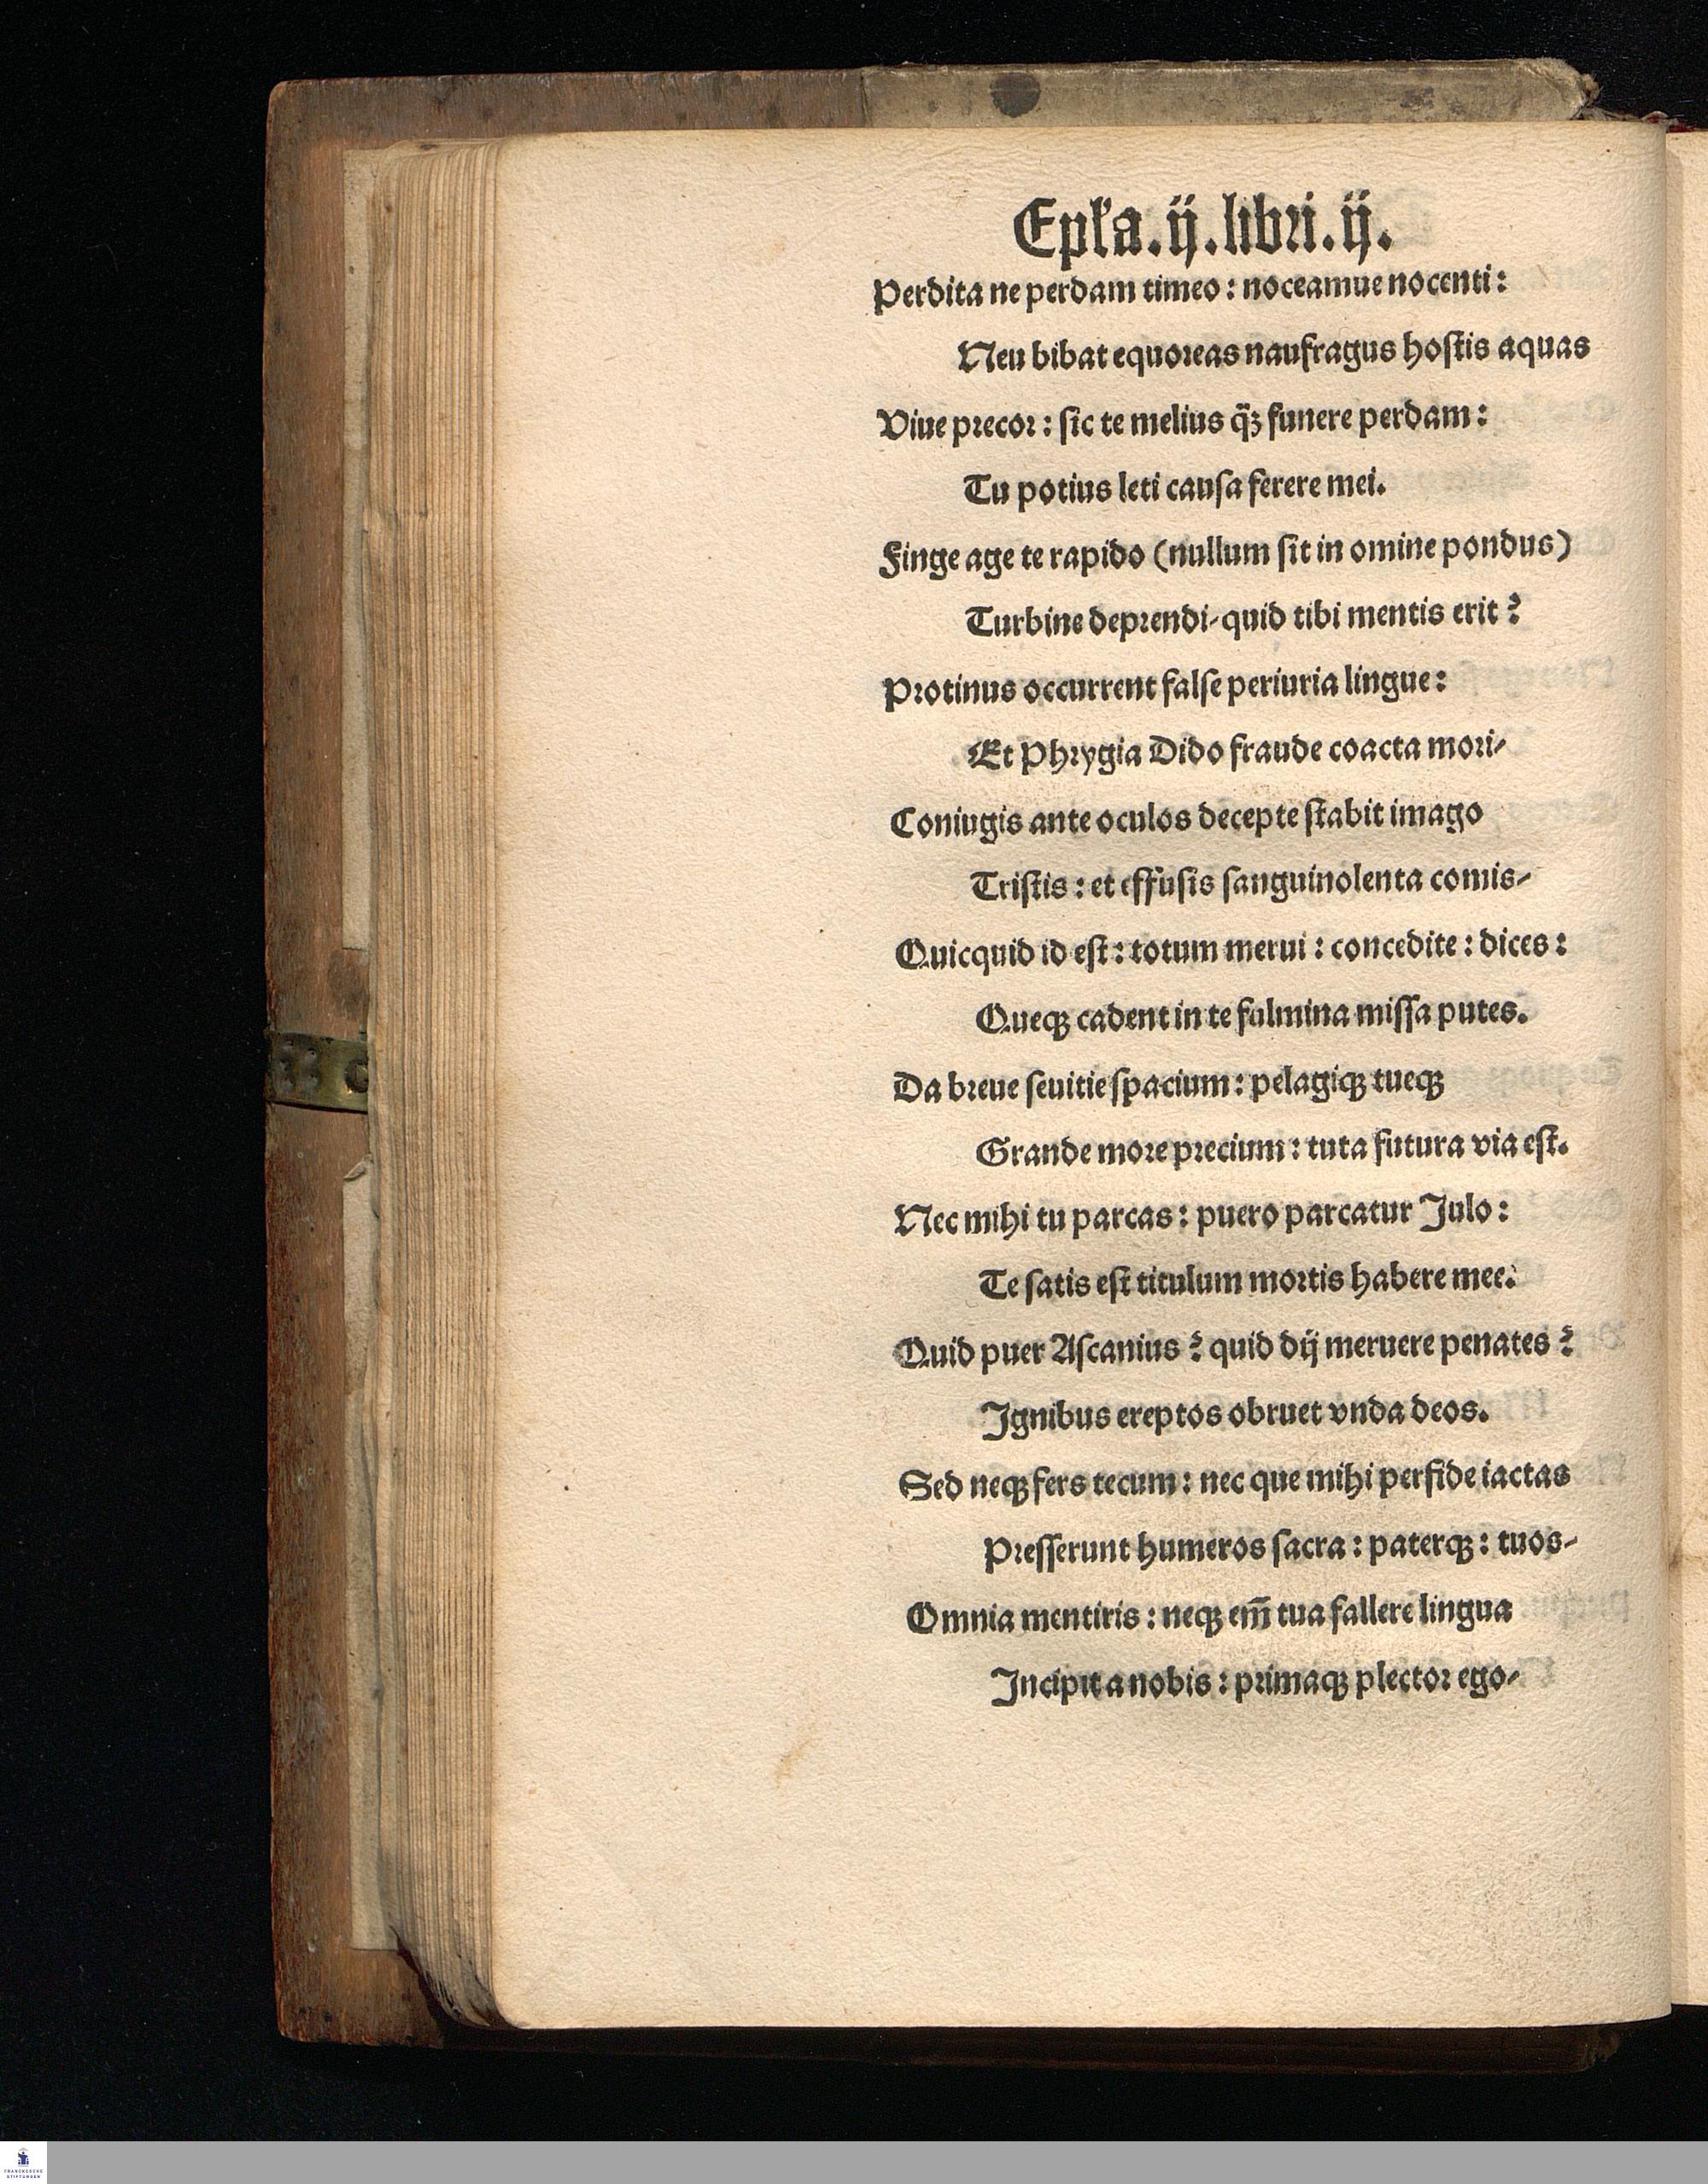 Epl'a.ij.libri.ij.
Perdita ne perdam timeo: noceamue nocenti:
Neu bibat equoreas naufragus hostis aquas
Viue precor: sic te melius q̈ꝫ funere perdam:
Tu potius leti causa ferere mei.
Finge age te rapido (nullum sit in omine pondus)
Turbine deprendi/quid tibi mentis erit?
Protinus occurrent false periuria lingue:
Et Phrygia Dido fraude coacta mori/
Coniugis ante oculos decepte stabit imago
Tristis: et effusis sanguinolenta comis/
Quicquid id est: totum merui: concedite: dices:
Queqꝫ cadent in te fulmina missa putes.
Da breue seuitie spacium: pelagiqꝫ tueqꝫ
Grande more precium: tuta futura via est.
Nec mihi tu parcas: puero parcatur Julo:
Te satis est titulum mortis habere mee.
Quid puer Ascanius? quid dij meruere penates?
Ignibus ereptos obruet vnda deos.
Sed neqꝫ fers tecum: nec que mihi perfide iactas
Presserunt humeros sacra: paterqꝫ: tuos/
Omnia mentiris: neqꝫ em̄ tua fallere lingua
Incipit a nobis: primaqꝫ plector ego/
FRANCKESCHE
STIFTUNGEN